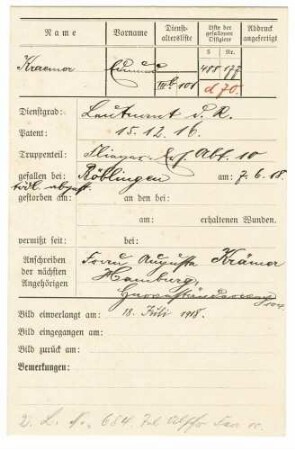 Name Vorname Dienst-altersliste Liste der gefallenen Offiziere Abdruck angefertigt
S Nr.
Kraemer 488 177
III b 101 d 70
Dienstgrad: Leutnant d. R.
Patent: 15.12.16.
Truppenteil: Flieger Abt. 10
gefallen bei: Röblingen am: 7.6.18
tödl. abgest.
gestorben am: an den bei:
am: erhaltenen Wunden.
vermißt seit: bei:
Anschreiben der nächsten Angehörigen Frau Augusta Krämer
Hamburg,
Bild einverlangt am: 18. Juli 1918.
Bild eingegangen am:
Bild zurück am:
Bemerkungen:
684